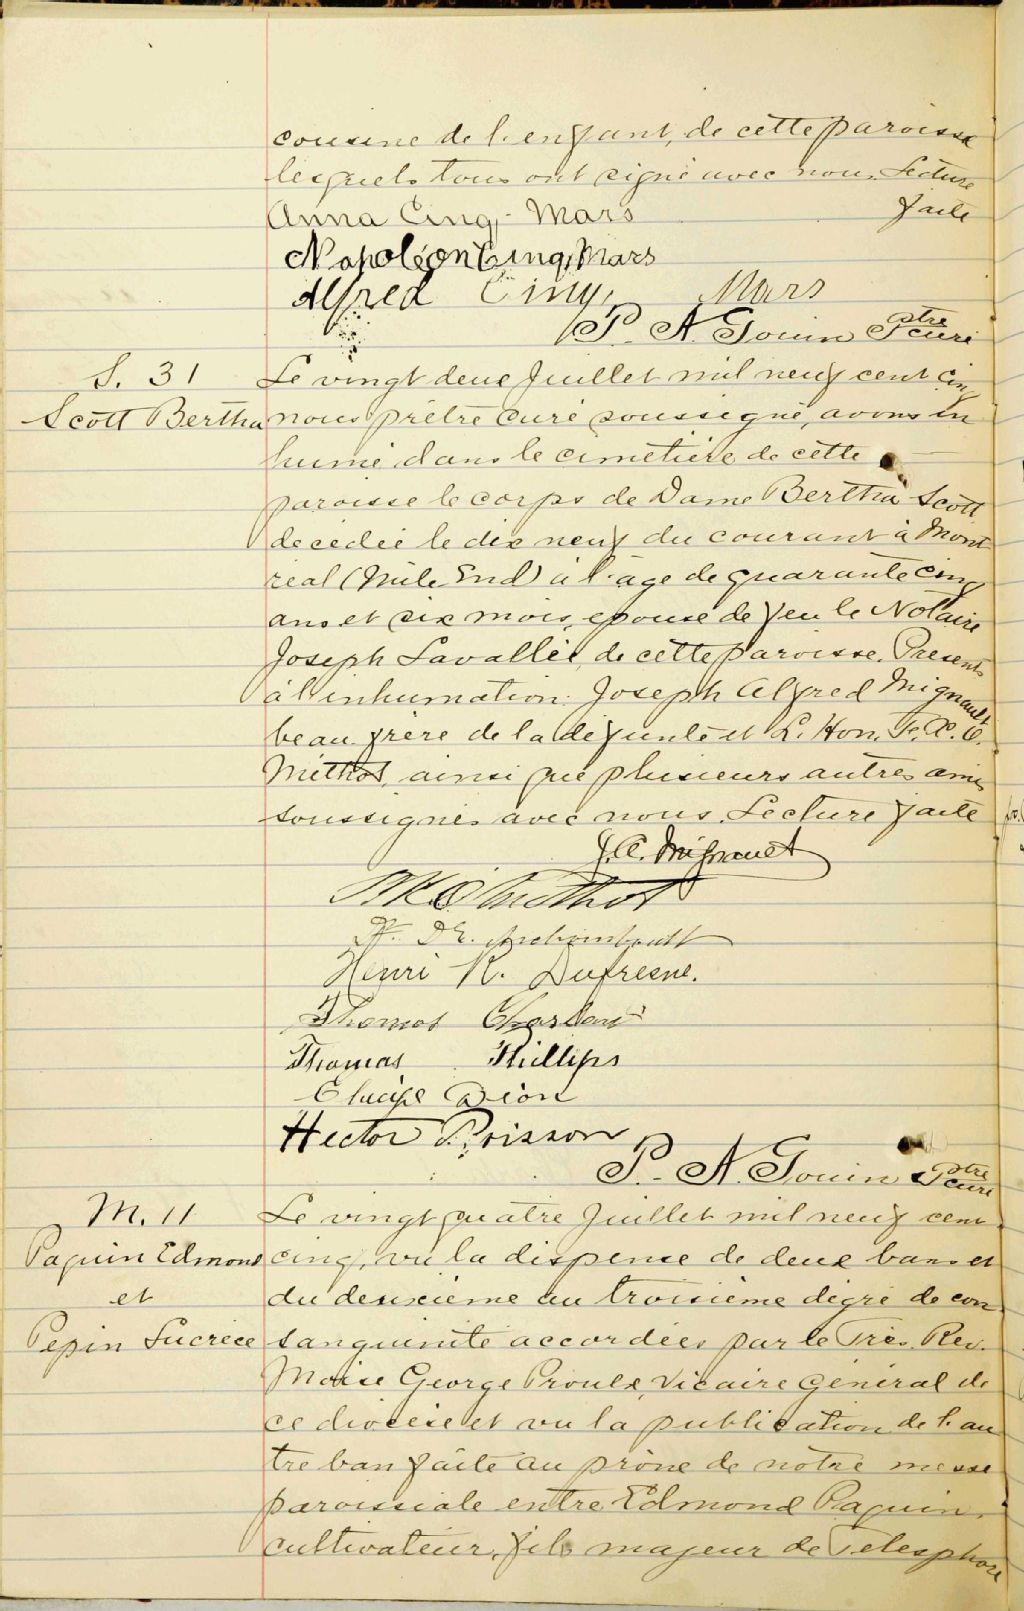 cousine de l'enfant, de cette paroisse
lesquels tous ont signé avec nous. Lecture
faite
Anna Cinq-Mars
Napoléon Cinq, Mars
Alfred Cinq, Mars
P. A. Gouin Ptre curé
S. 31
Scott Bertha
Le vingt deux Juillet mil neuf cent cinq
nous prêtre curé soussigné, avons in
humé dans le cimetière de cette
paroisse le corps de Dame Bertha Scott
décédée le dix neuf du courant à Mont
réal (Mile End) à l'age de quarante cinq
ans et six mois, épouse de feu le Notaire
Joseph Lavallée, de cette paroisse. Présents
à l'inhumation: Joseph Alfred Mignault
beau-frère de la défunte et L'Hon. F. X. O.
Méthot, ainsi que plusieurs autres amis
soussignés avec nous. Lecture faite
J. A. Mignault
Methot
Archambault
Henri R. Dufresne.
Thomas
Thomas Phillips
Dion
Hector Poisson
P. A. Gouin Ptre curé
M. 11
Paquin Edmond
et
Pepin Lucrèce
Le vingt quatre Juillet mil neuf cent
cinq, vu la dispense de deux bans et
du deuxième au troisième dégré de con
sanguinité accordées par le Très Rev.
Moïse George Proulx, Vicaire Général de
ce diocèse et vu la publication de l'au
tre ban faite au prône de notre messe
paroissiale entre Edmond Paquin,
cultivateur, fils majeur de Télesphore